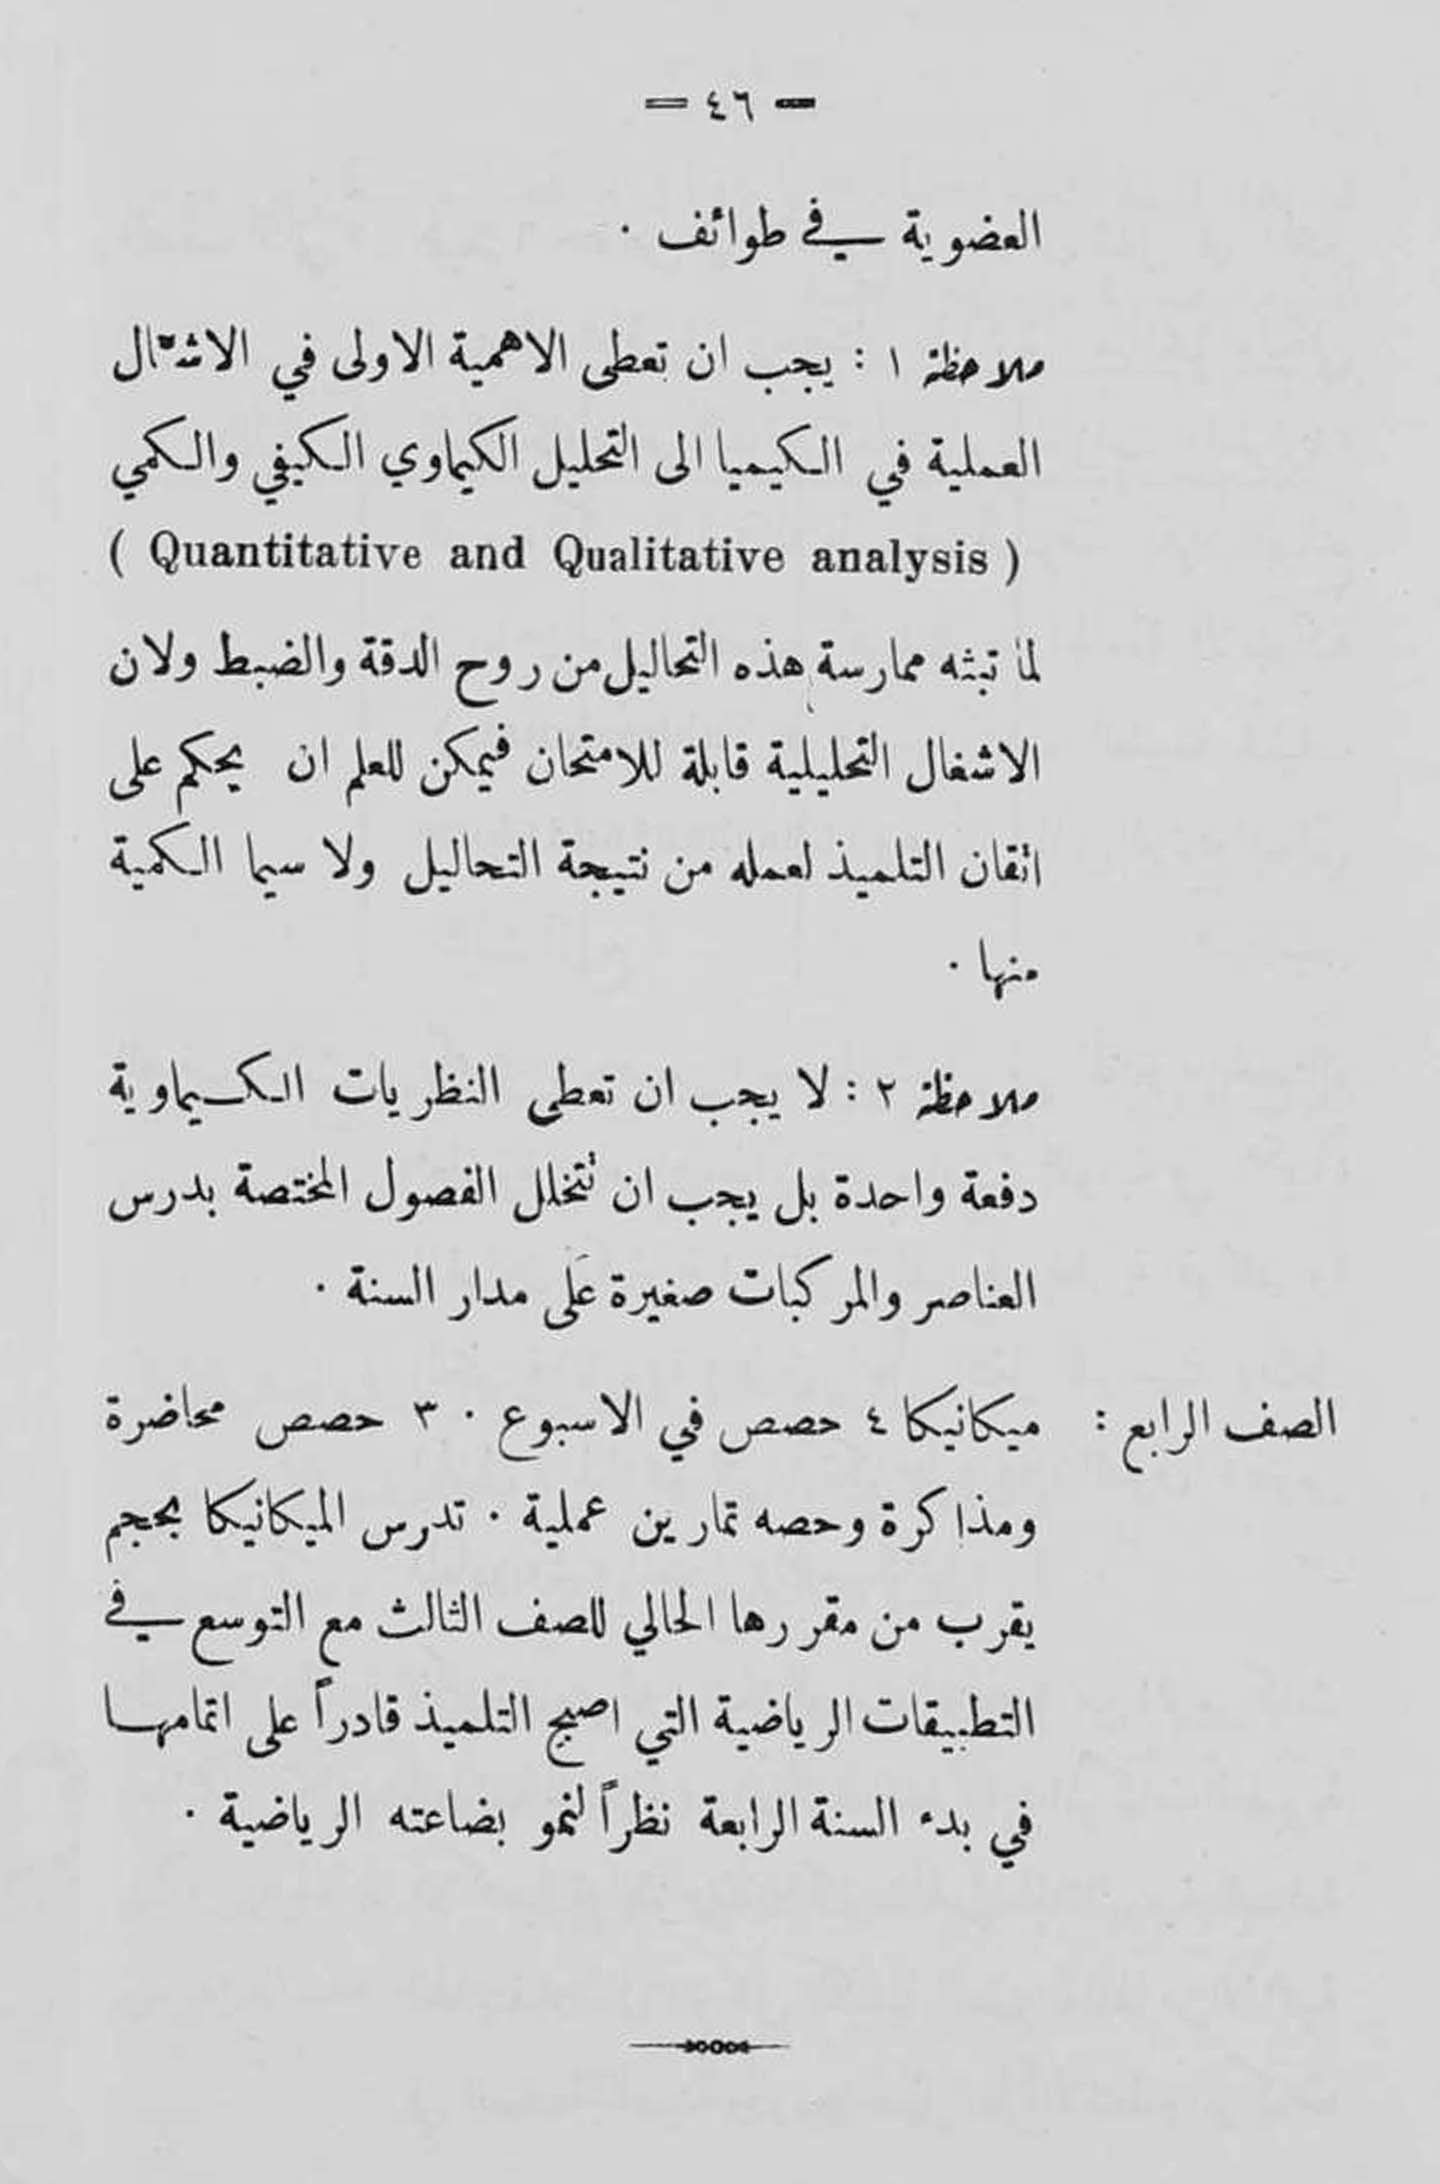 — ٤٦ —
العضوية في طوائف ٠
ملاحظة ١ : يجب ان تعطى الاهمية الاولى في
العملية في الكيميا الى التحليل الكيماوي الكيفي والكمي
( Quantitative and Qualitative analysis )
لما تبثه ممارسة هذه التحاليل من روح الدقة والضبط ولان
الاشغال التحليلية قابلة للامتحان فيمكن للعلم ان يحكم على
اتقان التلميذ لعمله من نتيجة التحاليل ولا سيما الكمية
منها ٠
ملاحظة ٢ : لا يجب ان تعطى النظريات الكيماوية
دفعة واحدة بل يجب ان تتخلل الفصول المختصة بدرس
العناصر والمركبات صغيرة على مدار السنة ٠
الصف الرابع : ميكانيكا ٤ حصص في الاسبوع ٠ ٣ حصص محاضرة
ومذاكرة وحصه تمارين عملية ٠ تدرس الميكانيكا بحجم
يقرب من مقررها الحالي للصف الثالث مع التوسع في
التطبيقات الرياضية التي اصبح التلميذ قادراً على اتمامها
في بدء السنة الرابعة نظراً لنمو بضاعته الرياضية ٠